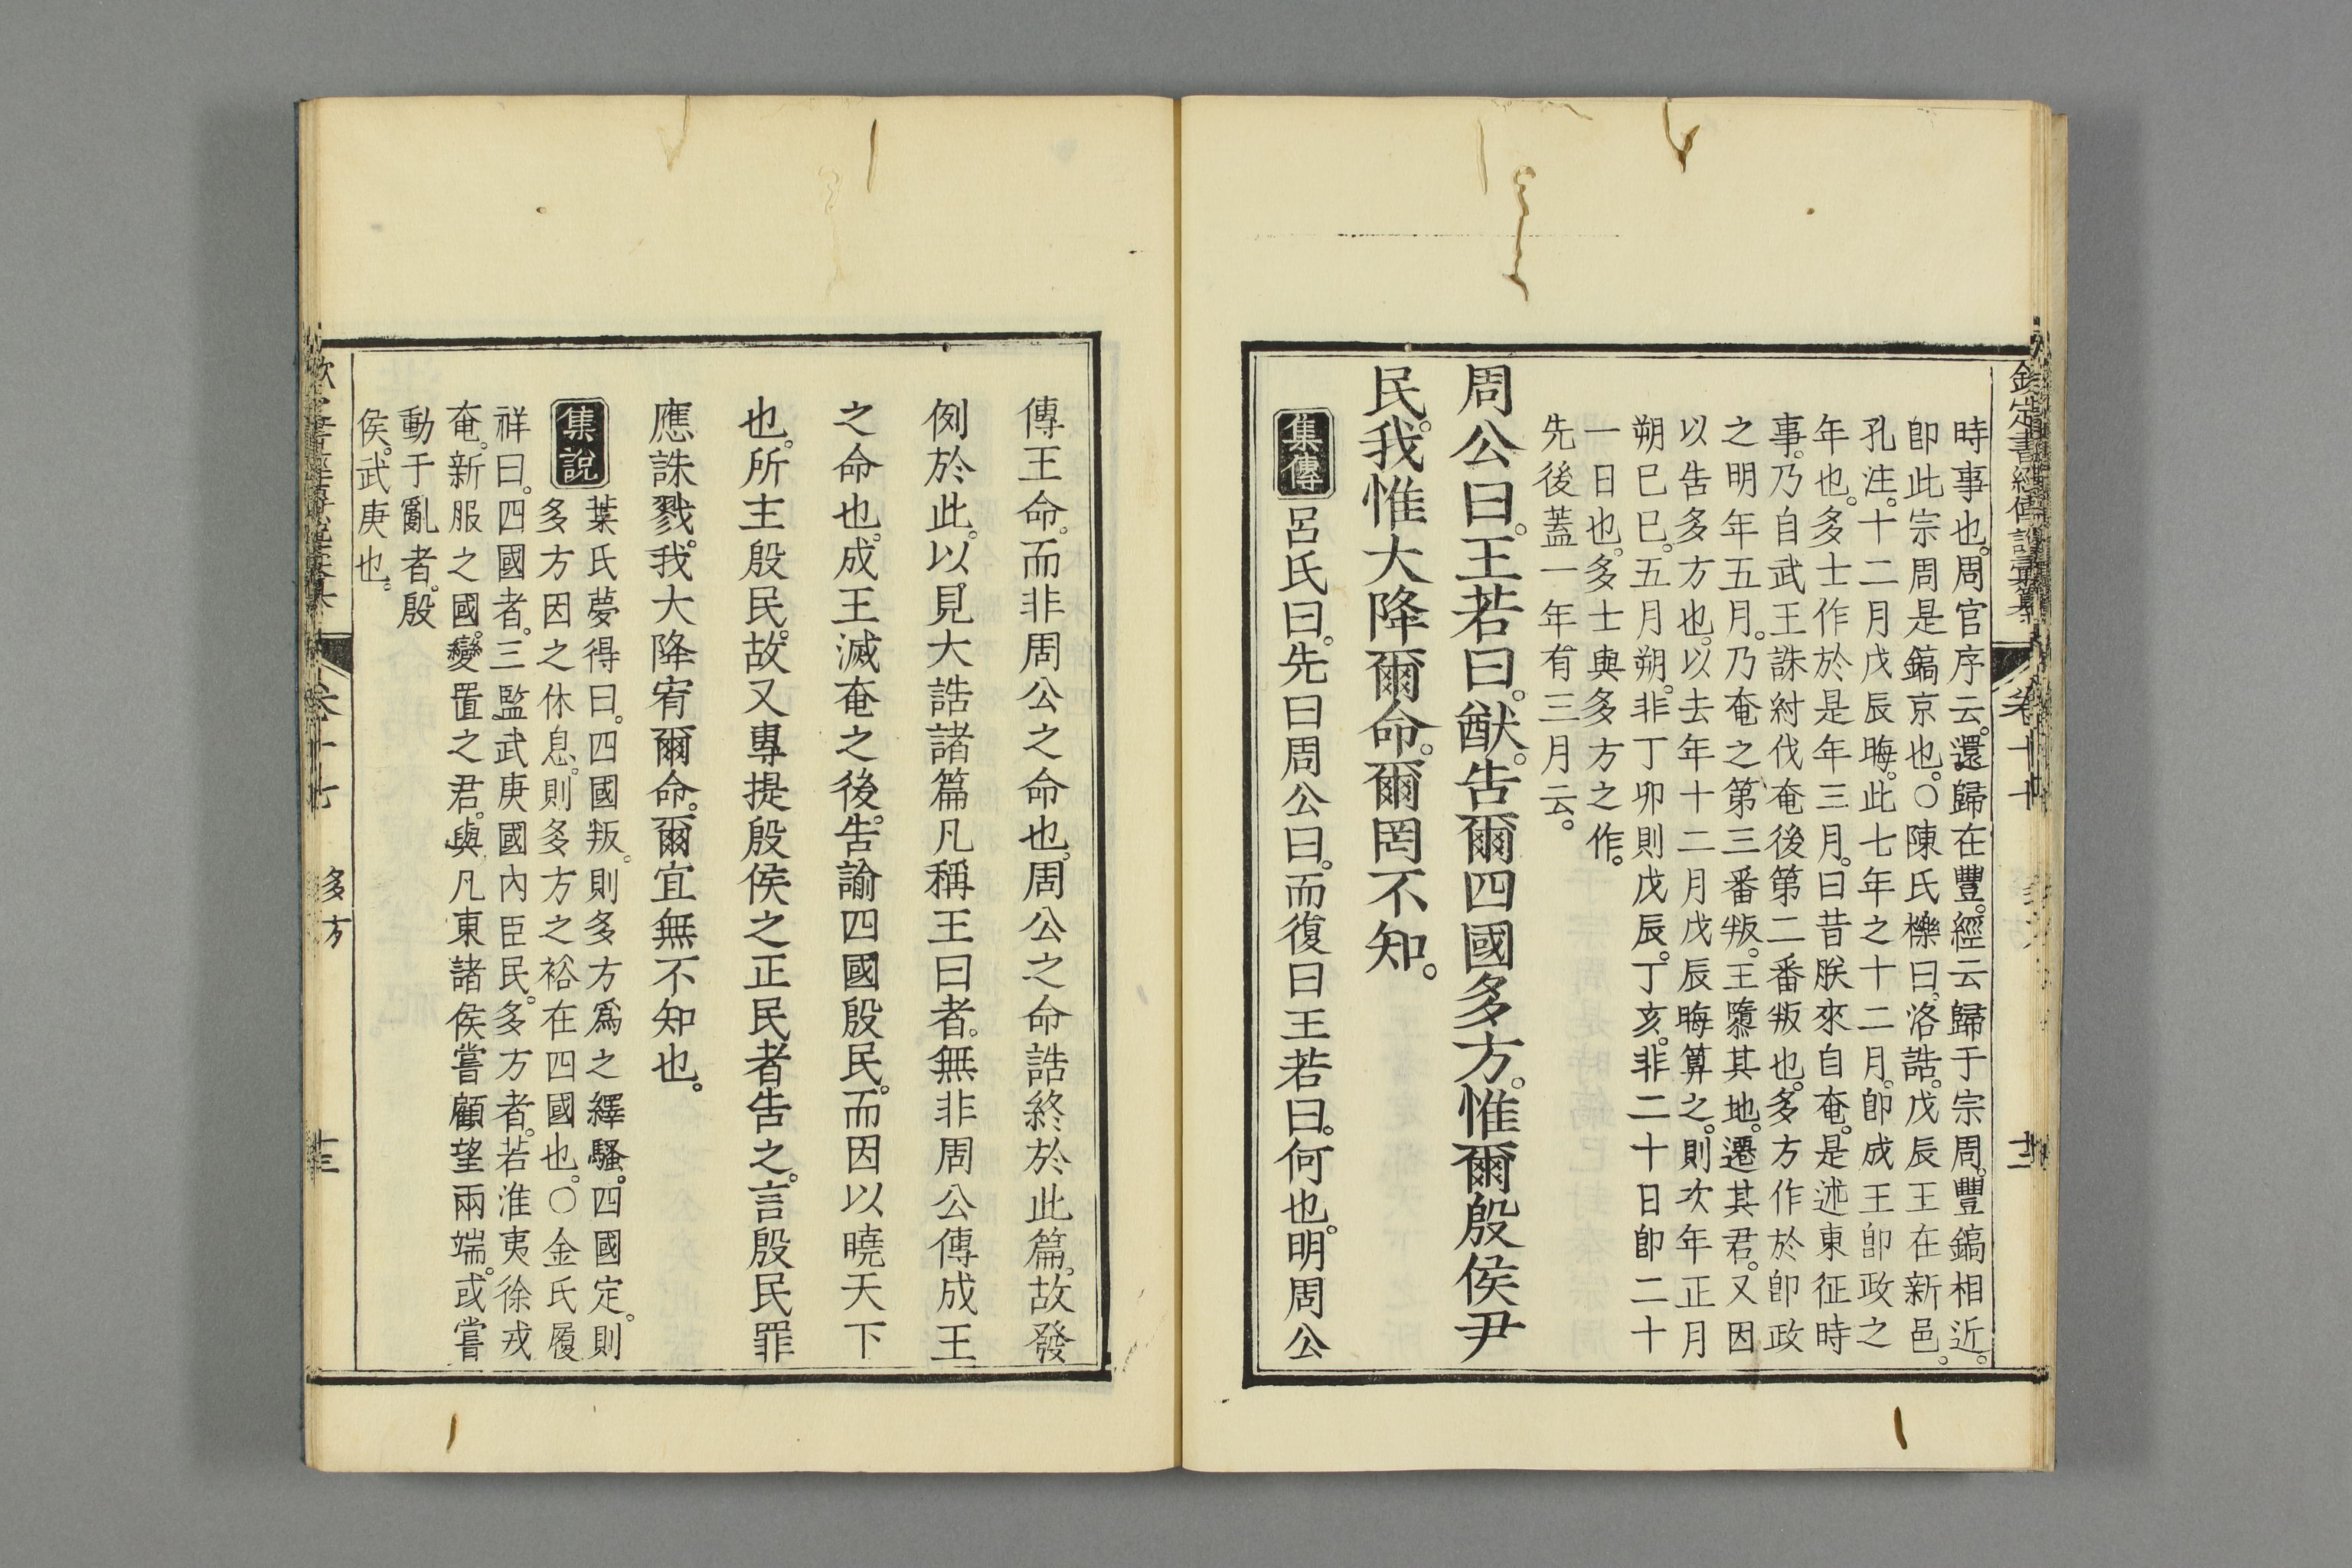 欽定書經傳說彙纂
卷十七
時事也。周官序云。還歸在豐。經云歸于宗周。豐鎬相近。
卽此宗周是鎬京也。○陳氏櫟曰。洛誥。戊辰王在新邑。
孔注。十二月戊辰晦。此七年之十二月。卽成王卽政之
年也。多士作於是年三月。曰昔朕來自奄。是述東征時
事。乃自武王誅紂伐奄後第二番叛也。多方作於卽政
之明年五月。乃奄之第三番叛。王隳其地。遷其君。又因
以告多方也。以去年十二月戊辰晦算之。則次年正月
朔巳巳。五月朔。非丁卯則戊辰。丁亥。非二十日卽二十
一日也。多士與多方之作。
先後蓋一年有三月云。
周公曰。王若曰。猷。告爾四國多方。惟爾殷侯尹
民。我惟大降爾命。爾罔不知。
集傳 呂氏曰。先曰周公曰。而復曰王若曰。何也。明周公
傳王命。而非周公之命也。周公之命誥終於此篇。故發
例於此。以見大誥諸篇凡稱王曰者。無非周公傳成王
之命也。成王滅奄之後。告諭四國殷民。而因以曉天下
也。所主殷民。故又專提殷侯之正民者告之。言殷民罪
應誅戮。我大降宥爾命。爾宜無不知也。
集說 葉氏夢得曰。四國叛。則多方爲之繹騷。四國定。則
多方因之休息。則多方之裕在四國也。○金氏履
祥曰。四國者。三監武庚國內臣民。多方者。若淮夷徐戎
奄。新服之國。變置之君。與凡東諸侯嘗顧望兩端。或嘗
動于亂者。殷
侯。武庚也。
卷十七
多方
十三